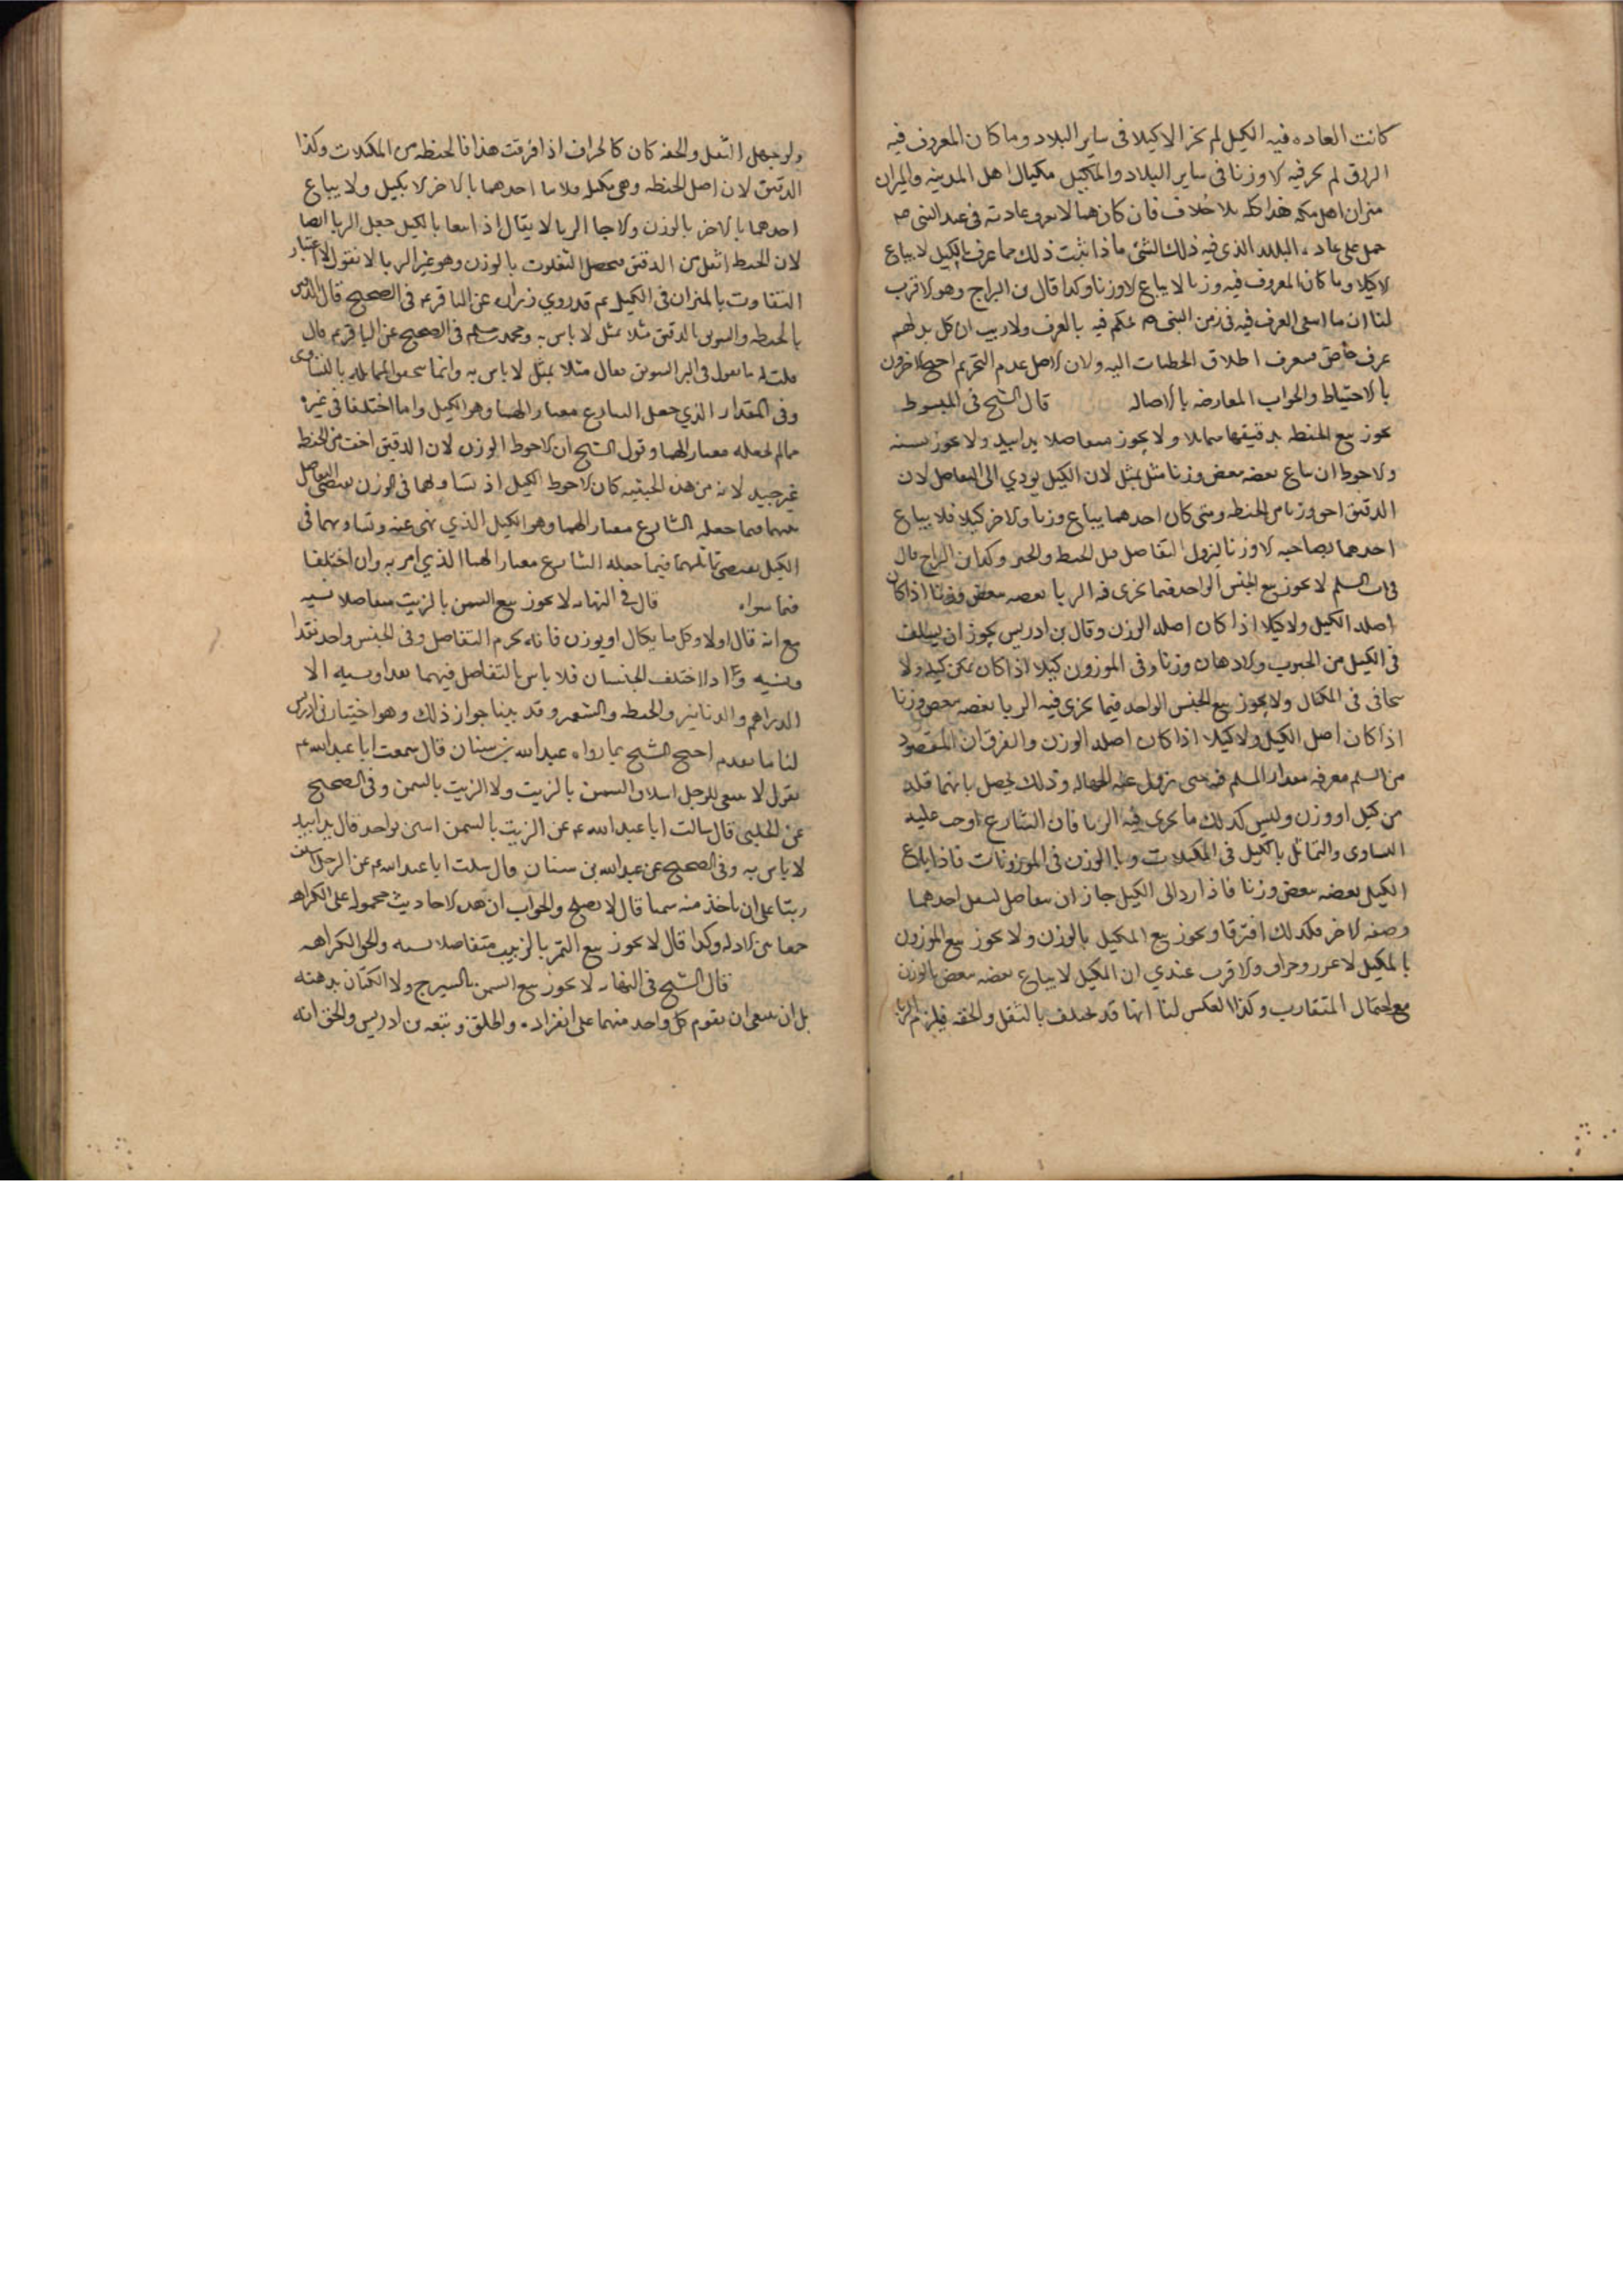 كانت العاده فيه الكيل لم يجز الا كيلا فى ساير البلاد وما كان المعروف فيه
الوزن لم يجز فيه الا وزنا فى ساير البلاد والمكيل مكيال اهل المدينه والميزان
ميزان اهل مكه هذا كله بلا خلاف فان كان مما لا يعرف عادته فى عهد النبى ص
حمل على عاده البلد الذى فيه ذلك الشئ فاذا ثبت ذلك فما عرف بالكيل لا يباع
الا كيلا وما كان المعروف فيه وزنا لا يباع الا وزنا وكذا قال بن البراج وهو الاقرب
لنا ان ما انتفى العرف فيه فى زمن النبى ص حكم فيه بالعرف ولا ريب ان كل بلد لهم
عرف خاص فيصرف اطلاق الخطابات اليه ولان الاصل عدم التحريم احتج الاخرون
بالاحتياط والجواب المعارضه بالاصاله قال الشيخ فى المبسوط
يجوز بيع الحنطه بدقيقها متماثلا ولا يجوز متفاضلا يدا بيد ولا يجوز نسيه
والاحوط ان يباع بعضه ببعض وزنا مثل بمثل لان الكيل يودي الى التفاضل لان
الدقيق اخف وزنا من الحنطه ومتى كان احدهما يباع وزنا والاخر كيلا فلا يباع
احدهما بصاحبه الا وزنا ليزول التفاضل مثل الحنطه والخبز وكذا بن البراج وقال
فى السلم لا يجوز بيع الجنس الواحد فيما يجرى فيه الربا بعضه ببعض وزنا اذا كان
اصله الكيل ولا كيلا اذا كان اصله الوزن وقال بن ادريس يجوز ان يسلف
فى الكيل من الحبوب والادهان وزنا وفى الموزون كيلا اذا كان يمكن كيله ولا
يتجافى فى المكيال ولا يجوز بيع الجنس الواحد فيما يجرى فيه الربا بعضه ببعض وزنا
اذا كان اصل الكيل ولا كيلا اذا كان اصله الوزن والفرق ان المقصود
من السلم معرفه مقدار المسلم فيه حتى تزول عنه الجهاله وذلك يحصل بايهما قدره
من كيل او وزن وليس كذلك ما يجرى فيه الربا فان الشارع اوجب عليه
التساوى والتماثل بالكيل فى المكيلات وبا الوزن فى الموزونات فاذا باع
الكيل بعضه ببعض وزنا فاذا رد الى الكيل جاز ان يتفاضل لثقل احدهما
وخفه الاخر فلذلك افترقا ويجوز بيع المكيل بالوزن ولا يجوز بيع الموزون
بالمكيل لا غرر وجزاف والاقرب عندي ان المكيل لا يباع بعضه ببعض بالوزن
مع احتمال المتقارب وكذا العكس لنا انها قد تختلف بالثقل والخفه فيلزم الربا
ولو جهل الثقل والخفه كان كالجزاف اذا عرفت هذا فالحنطه من المكيلات وكذا
الدقيق لان اصل الحنطه وهى مكيله فلا يباع احدهما بالاخر الا بكيل ولا يباع
احدهما بالاخر بالوزن والا جا الربا لا يقال اذا بيعا بالكيل حصل الربا ايضا
لان الحنطه اثقل من الدقيق فيحصل التفاوت بالوزن وهو عين الربا لانا نقول لا اعتبار
التفاوت بالميزان فى الكيل ثم قد روي زراره عن الباقر ع فى الصحيح قال الدقيق
بالحنطه والسويق بالدقيق مثلا بمثل لا باس به ومحمد بن مسلم فى الصحيح عن الباقر ع قال
قلت له ما تقول فى البر السويق فقال مثلا بمثل لا باس به وانما يتحقق المماثله بالتساوى
وفى المقدار الذي جعل الشارع معيارا لهما وهو الكيل واما اختلفا فى غيره
مما لم يجعله معيارا لهما وقول الشيخ ان الاحوط الوزن لان الدقيق اخف من الحنطه
غير جيد لانه من هذه الحيثيه كان الاحوط الكيل اذ تساويهما فى الوزن يقتضى التفاضل
بينهما فيما جعله الشارع معيارا لهما وهو الكيل الذي نهى عنه وتساويهما فى
الكيل يقتضى تماثلهما فيما جعله الشارع معيارا لهما الذي امر به وان اختلفا
فيما سواه قال فى النهايه لا يجوز بيع السمن بالزيت متفاضلا نسيه
مع انه قال اولا وكل ما يكال او يوزن فانه يحرم التفاضل وفى الجنس واحد نقدا
ونسيه واذا اختلف الجنسان فلا باس بالتفاضل فيهما نقدا ونسيه الا
الدراهم والدنانير والحنطه والشعير وقد بينا جواز ذلك وهو اختيار بن ادريس
لنا ما تقدم احتج الشيخ بما رواه عبد الله بن سنان قال سمعت ابا عبد الله ع
يقول لا ينبغى للرجل اسلاف السمن بالزيت ولا الزيت بالسمن وفى الصحيح
عن الحلبى قال سالت ابا عبد الله ع عن الزيت بالسمن اثنين بواحد قال يدا بيد
لا باس به وفى الصحيح عن عبد الله بن سنان قال سالت ابا عبد الله ع عن الرجل اسلف
زيتا على ان ياخذ منه سمنا قال لا يصلح والجواب ان هذه الاحاديث محموله على الكراهه
جمعا بين الادله وكذا قال لا يجوز بيع التمر بالزبيب متفاضلا نسيه والحق الكراهه
قال الشيخ فى النهايه لا يجوز بيع السمن بالسيرج ولا الكتان بدهنه
بل ان ينبغى ان يقوم كل واحد منهما على انفراده واطلق وتبعه بن ادريس والحق انه